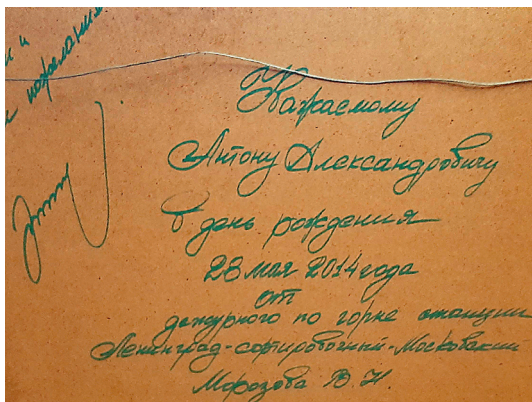 и
пожелания
Уважаемому
Антону Александровичу
в день рождения
28 мая 2014 года
от
дежурного по горке станции
Ленинград-сортировочный-Московский
Морозова В. Н.